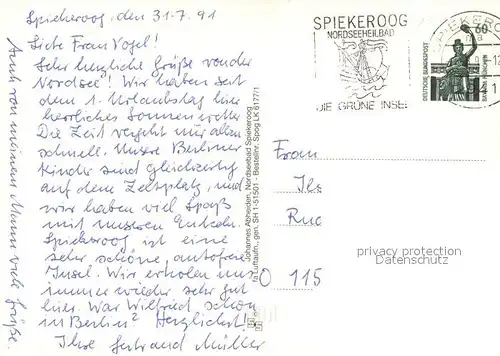 Spiekeroog, den 31.7.91
Liebe Frau Vogel!
Sehr herzliche Grüße von der
Nordsee! Wir haben seit
dem 1. Urlaubstag hier
herrliches Sonnenwetter.
Die Zeit vergeht nur allzu
schnell. Unsere Berliner
Kinder sind gleichzeitig
auf dem Zeltplatz, und
wir haben viel Spaß
mit unseren Enkeln.
Spiekeroog ist eine
sehr schöne, autofreie
Insel. Wir erholen uns
immer wieder sehr gut
hier. War Wilfried schon
in Berlin? Herzlichst!
Ihre Gertraud Müller
Auch von meinem Mann viele Grüße.
Johannes Abheiden, Nordseebad Spiekeroog
fa Luftaufn., gen. SH 1-51501 - Bestellnr. Spog LK 6177/1
SPIEKEROOG
NORDSEEHEILBAD
DIE GRÜNE INSEL
SPIEKERO
60
DEUTSCHE BUNDESPOST
BAVARIA MÜNCHEN
Frau
O 115
privacy protection
Datenschutz